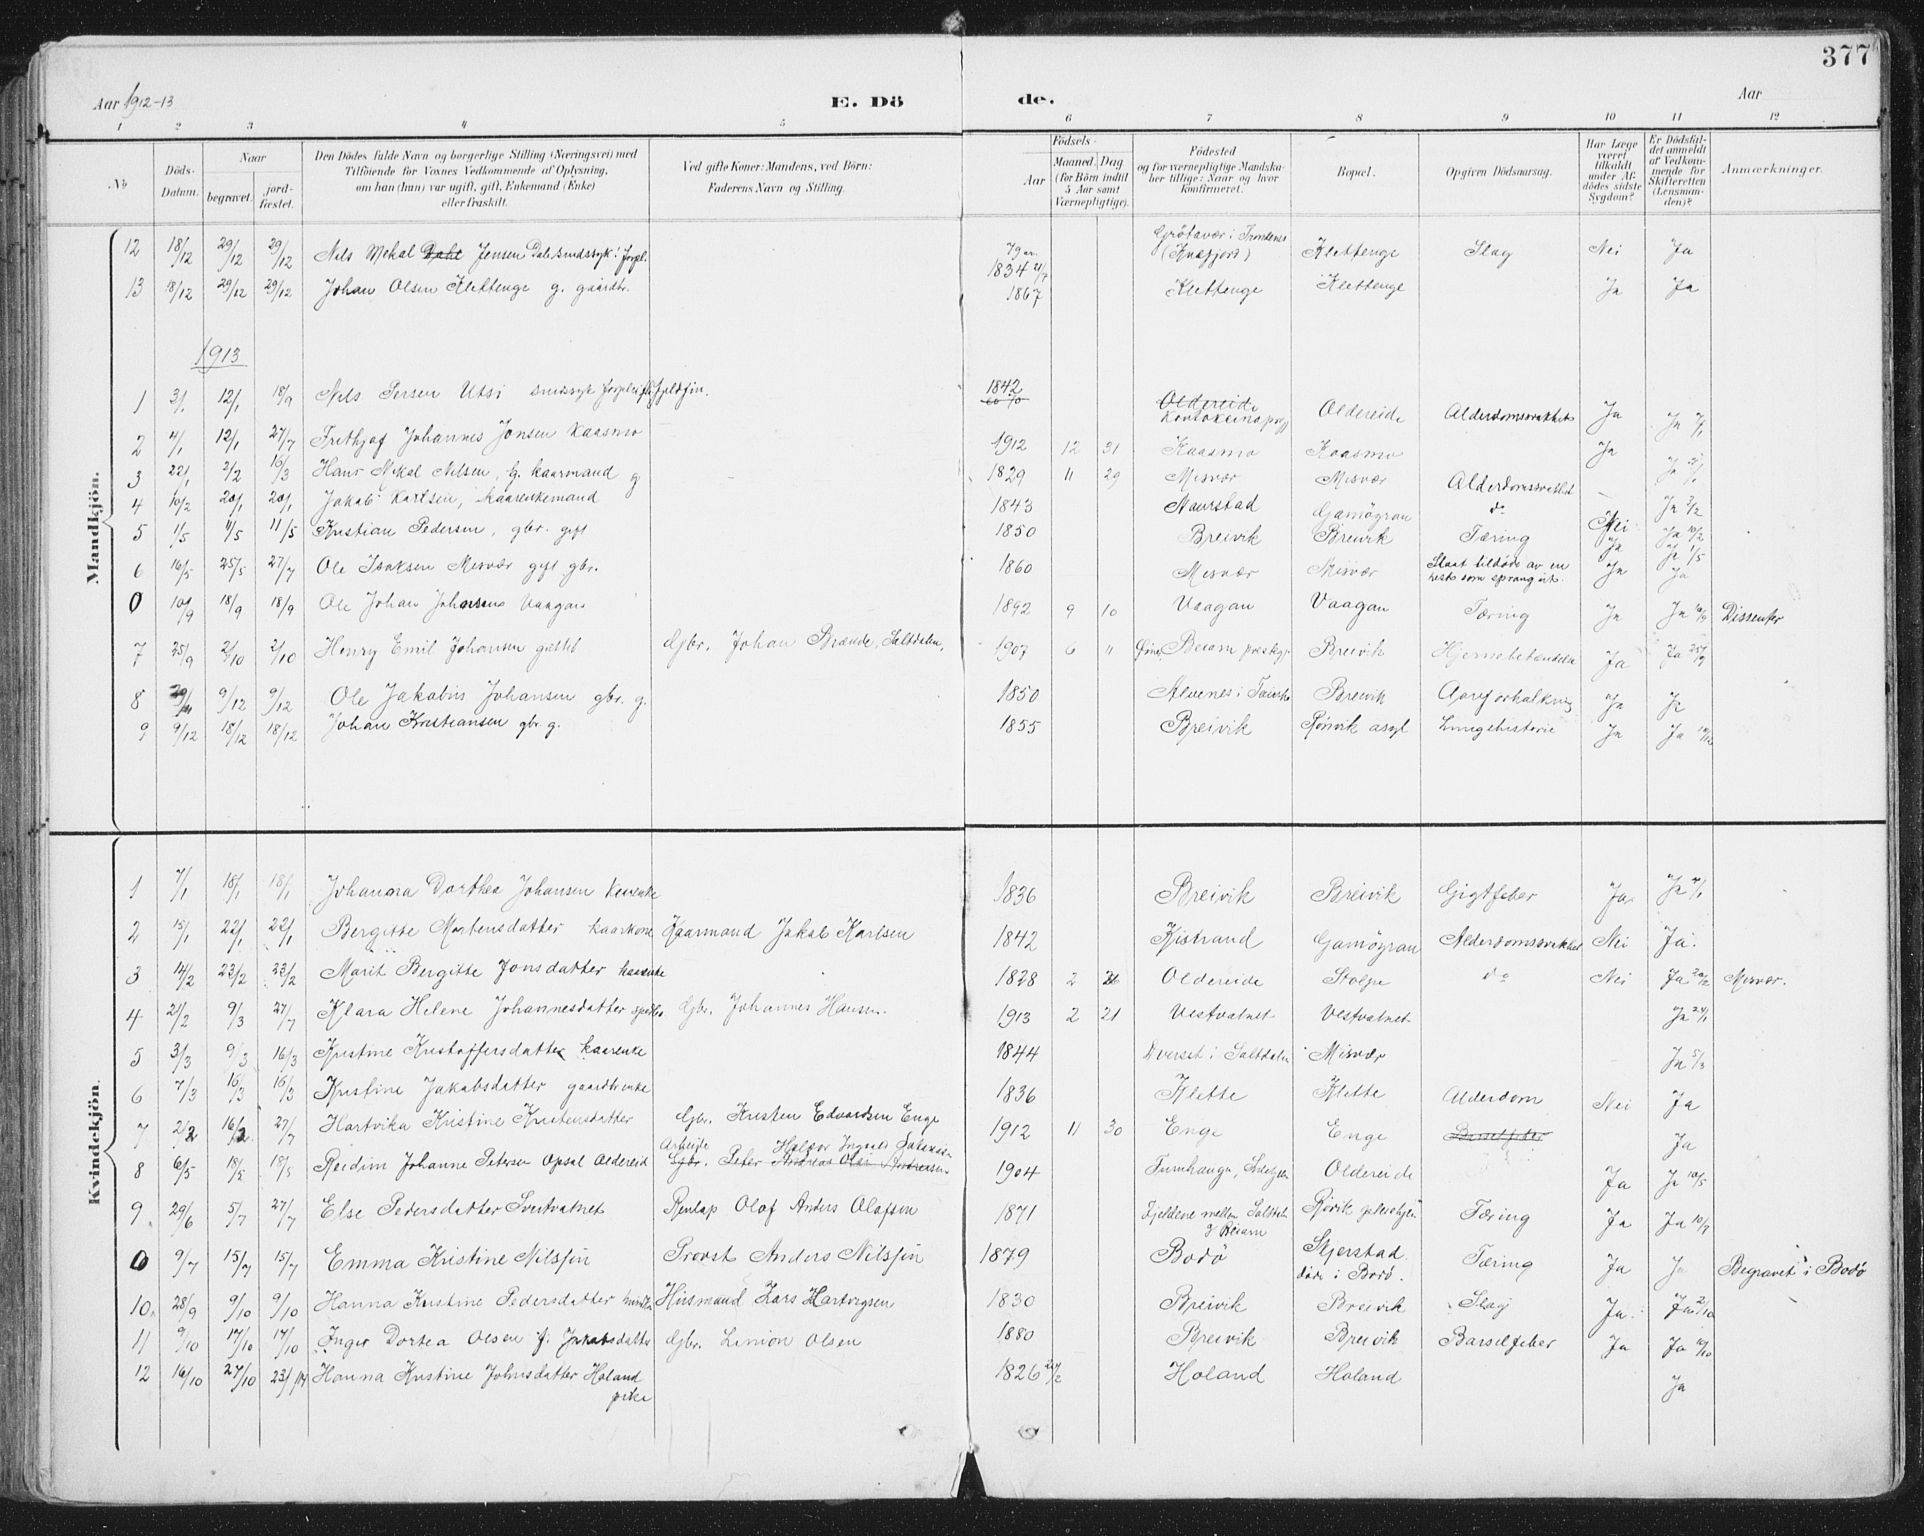 377
Aar 1912-13 E. Dö de. Aar
1 2 3 4 5 6 7 8 9 10 11 12
No Döds-Datum. Naar begravet. jord-fæstet. Den Dödes fulde Navn og borgerlige Stilling (Næringsvei) med Tilföiende for Voxnes Vedkommende af Oplysning, om han (hun) var ugift, gift, Enkemand (Enke) eller fraskilt. Ved gifte Koner: Mandens, ved Börn: Faderens Navn og Stilling. Födsels- Aar Maaned. Dag (for Börn indtil 5 Aar samt Værnepligtige). Födested og for værnepligtige Mandskaber tillige: Naar og hvor konfirmeret. Bopæl. Opgiven Dödsaarsag. Har Læge været tilkaldt under Afdödes sidste Sygdom? Er Dödsfaldet anmeldt af Vedkommende for Skifteretten (Lensmanden)? Anmærkninger.
Mandkjön.
12 18/12 29/12 29/12 Nils Mekal Dahl Jensen Dale sindssyk i forpl. 1834 21/7 Grøtavær i Trondenes Klettenge Slag Nei Ja
13 18/12 29/12 29/12 Johan Olsen Klettenge g. gaardbr. 1867 Klettenge Klettenge Ja Ja
1913
1 3/1 12/1 18/9 Nils Persen Utsi sindssyk 1842 Oldereide Kautokeino Oldereide Alderdomssvakhet Ja Ja 7/1
2 4/1 12/1 27/7 Frithjof Johannes Jonsen Kaasmo 1912 12 31 Kaasmo Kaasmo Ja
3 22/1 2/2 16/3 Hans Mikal Nilsen, kaarmand g 1829 11 29 Misvær Misvær Alderdomssvakhet Ja
4 10/2 20/1 20/1 Jakob Karlsen, kaarenkemand 1843 Naurstad Gamøgran do Ja 3/2
5 1/5 11/5 11/5 Kristian Pedersen, gbr. gift 1850 Breivik Breivik Tæring Nei Ja 10/2
6 16/5 25/5 27/7 Ole Isaksen Misvær gift gbr. 1860 Misvær Misvær Slaat tildøde av en hest som sprang ut. Ja Ja
0 10/9 18/9 18/9 Ole Johan Johansens Vaagan 1892 9 10 Vaagan Vaagan Tæring Ja Ja Dissenter
7 25/9 2/10 2/10 Henry Emil Johansen Gbr. Johan Brænde, Saltdalen, 1907 6 11 Beiarn prestegj. Breivik Hjernebetændelse Ja Ja 25/9
8 29/11 9/12 9/12 Ole Jakobus Johansen gbr. g. 1850 Alvenes i Breivik Aareforkalkning Ja Ja
9 9/12 18/12 18/12 Johan Kristiansen gbr. g. 1855 Breivik Rønvik asyl Ja Ja 10/12
Kvindekjön.
1 7/1 18/1 18/1 Johanna Dorthea Johansen 1836 Breivik Breivik Gigtfeber Ja Ja
2 15/1 22/1 22/1 Bergitte Mortensdatter kaarkone Kaarmand Jakob Karlsen 1842 Kistrand Gamøgran Alderdomssvakhet Nei Ja.
3 14/2 23/2 23/2 Marit Bergitte Jonsdatter kaarenke 1828 2 26 Oldereide Stolpe do Nei Ja 20/2 Misvær.
4 21/2 9/3 27/7 Klara Helene Johannesdatter Gbr. Johannes Hansen 1913 2 21 Vestvatnet Vestvatnet Ja
5 3/3 9/3 16/3 Kristine Kristoffersdatter kaarenke 1844 Dverset i Saltdalen Misvær Ja 5/3
6 7/3 16/3 16/3 Kristine Jakobsdatter gaardbr.enke 1836 Klette Klette Alderdom Nei Ja
7 2/2 16/2 27/7 Hartvika Kristine Kristensdatter Gbr. Kristen Edvardsen Enge 1912 11 30 Enge Enge Barselfeber Ja
8 6/5 18/5 18/5 Reidun Johanne Petersen Opsal Oldereid Arbeide Gbr. Peter Andreas Olai Andreasen 1904 Oldereide Ja Ja 10/5
9 29/6 5/7 27/7 Else Pedersdatter Svertvatnet Renlap Olof Anders Olafsen 1871 Fjeldene mellem Saltdalen og Beiarn Tæring Ja Ja 10/7
0 9/7 15/7 15/7 Emma Kristine Nilsfin Provst Anders Nilsfin 1879 Bodø Skjerstad døde i Bodø. Tæring Ja Ja Begravet i Bodø
10 28/9 9/10 9/10 Hanna Kristine Pedersdatter Husmand Lars Hartvigsen 1830 Breivik Breivik Slag Ja Ja 2/10
11 9/10 17/10 17/10 Inger Dortea Olsen f. Jakobsdatter Gbr. Simon Olsen 1880 Breivik Breivik Barselfeber Ja Ja 10/10
12 16/10 27/10 Hanna Kristine Johnsdatter Holand pike 1826 Holand Holand Ja